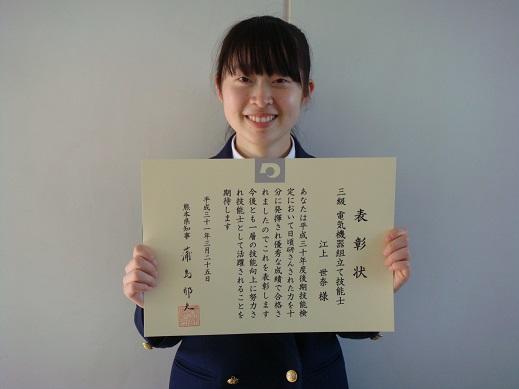 表彰状
三級 電気機器組立て技能士
江上 世奈 様
あなたは平成三十年度後期技能検
定において日頃研さんされた力を十
分に発揮され優秀な成績で合格さ
れましたのでこれを表彰します
今後とも一層の技能向上に努力さ
れ技能士として活躍されることを
期待します
平成三十一年三月二十五日
熊本県知事 蒲島郁夫